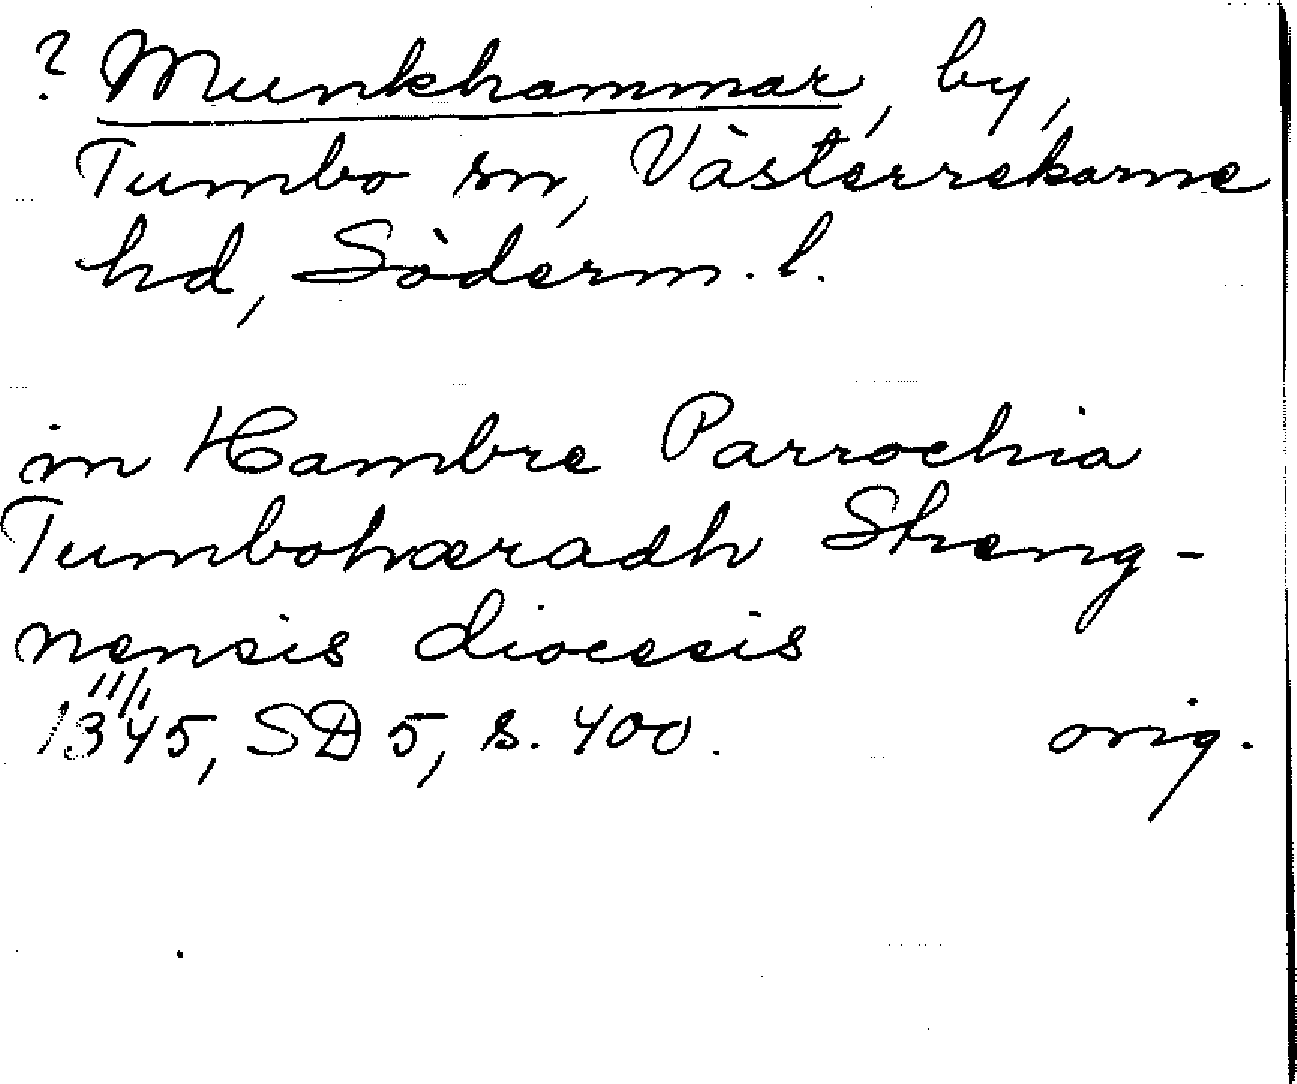 ? Munkhammar, by,
Tumbo sn, Västerrekarne
hd, Söderm. l.
in Hambre Parrochia
Tumbohæradh Streng-
nensis diocesis
11/1
1345, SD 5, s. 400. orig.